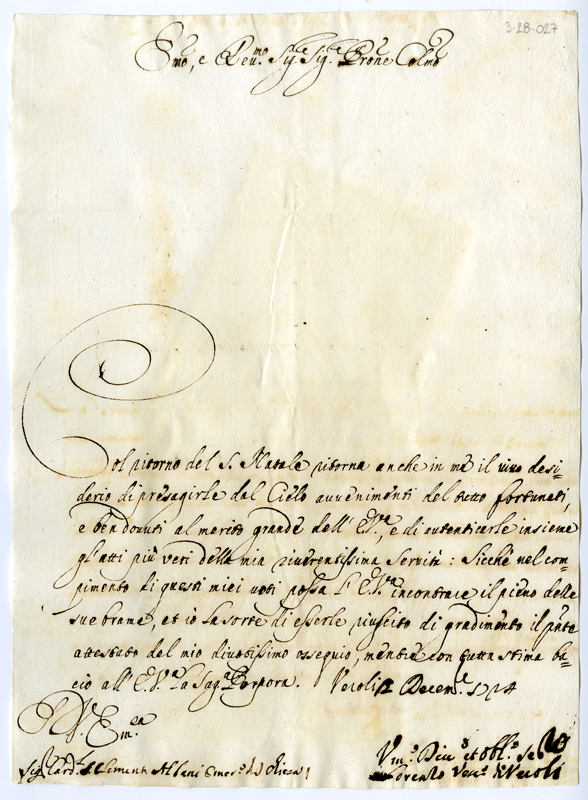 3-28-027
Emo, e Reu.mo Sig.re Sig.re Prone Colmo
Col ritorno del S. Natale ritorna anche in me il viuo desi=
derio di presagirle dal Cielo auuenimenti del tutto fortunati,
e ben douuti al merito grande dell' E.V.a, e di autenticarle insieme
gl'atti più veri della mia riuerentissima Seruitù: Sicche nel com=
pimento di questi miei uoti possa l' E.V.a incontrare il pieno delle
sue brame, et io la sorte di esserle riuscito di gradimento il pñte
attestato del mio diuotissimo ossequio, mentre con tutta stima ba=
cio all' E.V.a la Sag.a Porpora. Veroli Decem.e
D. V.a Em.a
Vm.o Diu.o et obl.o Se
Lorenzo Vesc.o di Veroli
Sig. Card. Clemente Albani